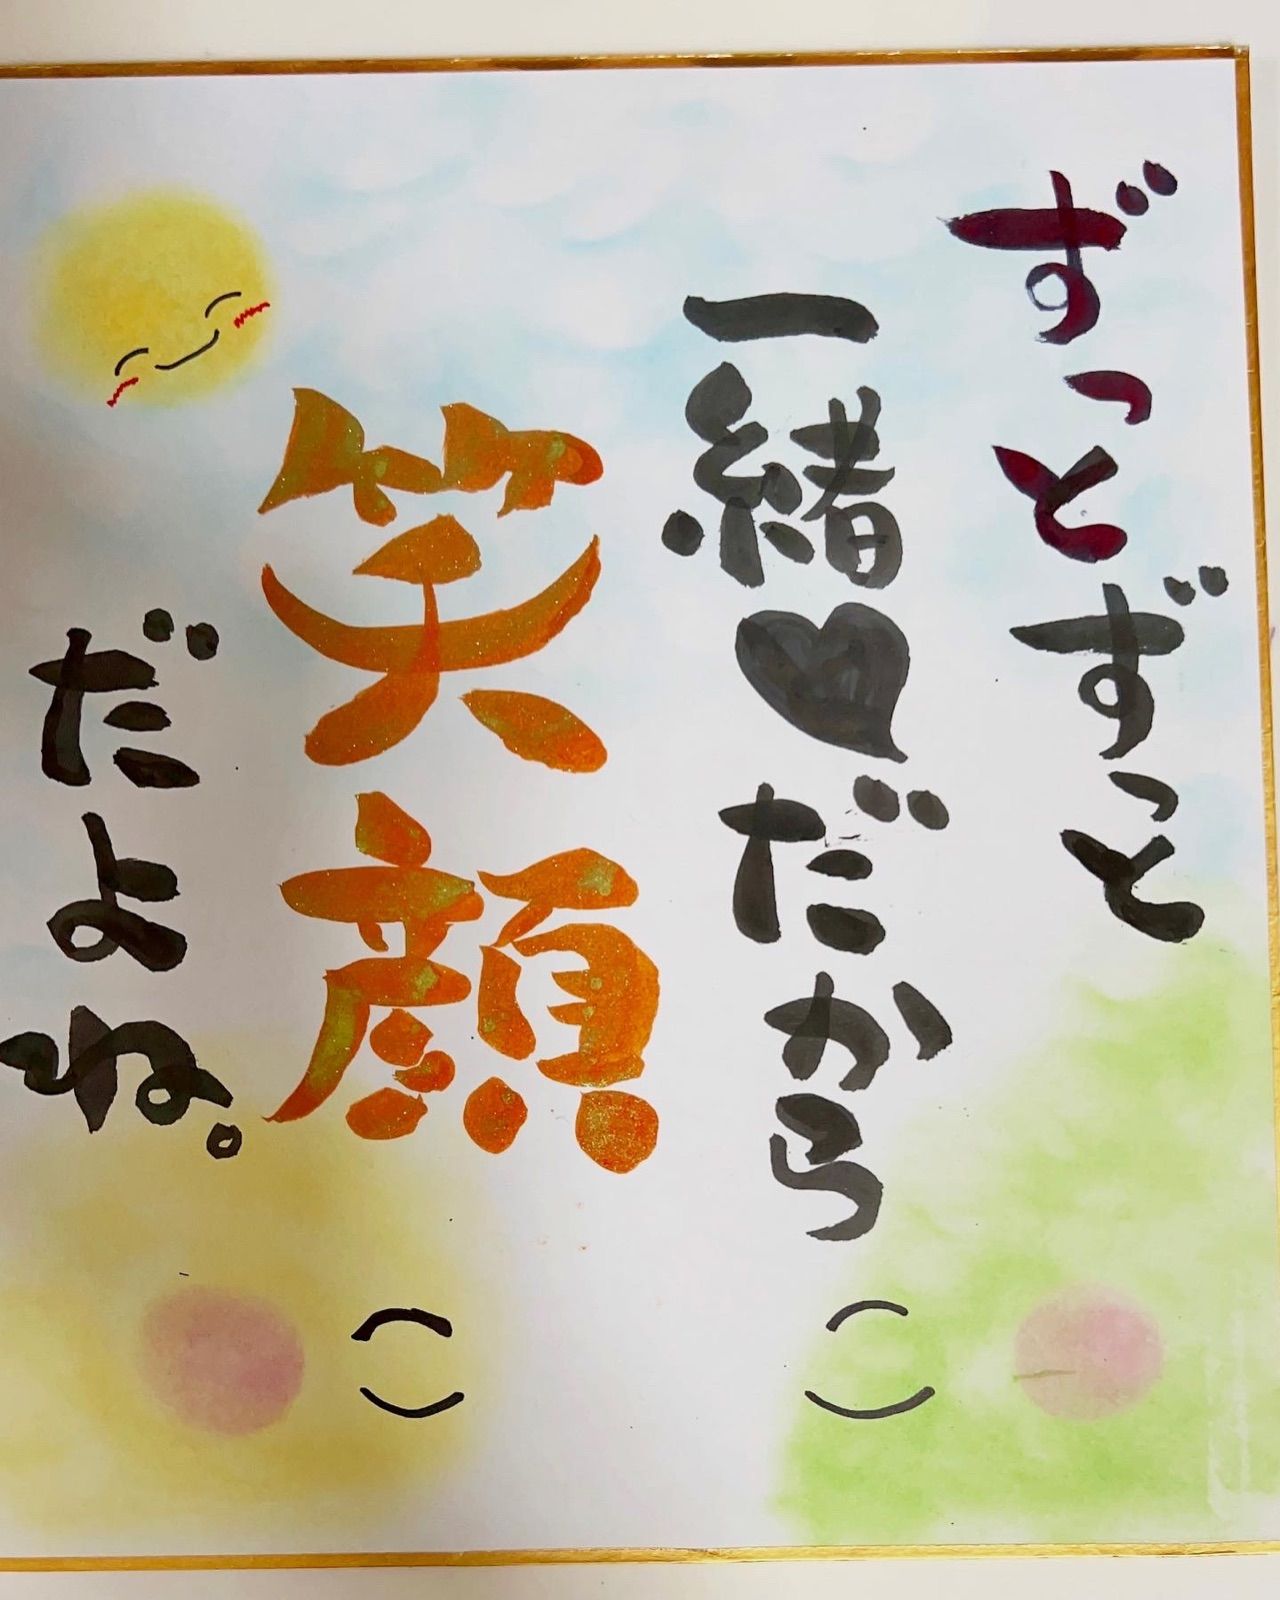 ずっとずっと
一緒♥だから
笑顔
だよね。